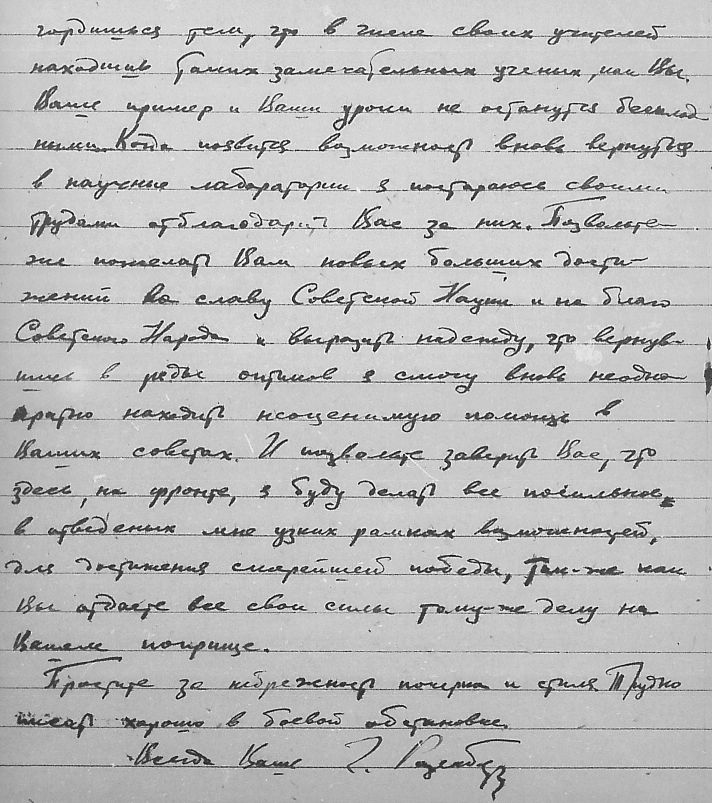 гордишься тем, что в числе своих учителей
находишь таких замечательных ученых, как Вы.
Ваше пример и Ваши уроки не останутся бесплод-
ными. Когда появится возможность вновь вернуться
в научные лаборатории я постараюсь своими
трудами отблагодарить Вас за них. Позвольте
же пожелать Вам новых больших дости-
жений во славу Советской Науки и на благо
Советского Народа и выразить надежду, что вернув-
шись в ряды оптиков я смогу вновь неодно-
кратно находить неоценимую помощь в
Ваших советах. И позвольте заверить Вас, что
здесь, на фронте, я буду делать все посильное,
в отведеных мне узких рамках возможностей,
для достижения скорейшей победы, так-же как
Вы отдаете все свои силы тому-же делу на
Вашем поприще.
Простите за небрежность почерка и стиля. Трудно
писать хорошо в боевой обстановке.
Всегда Ваш Г. Розенберг